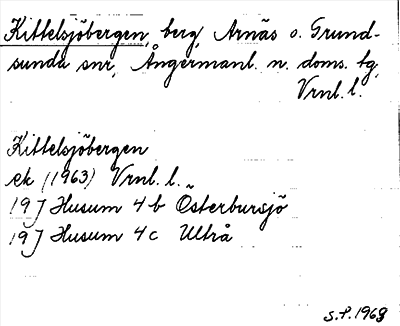 Kittelsjöbergen, berg, Arnäs o. Grund-
sunda snr, Ångermanl. n. doms. tg,
Vrnl. l.
Kittelsjöbergen
ek (1963) Vrnl. l.
19J Husum 4 b Österbursjö
19J Husum 4 c Ultrå
S.P. 1968